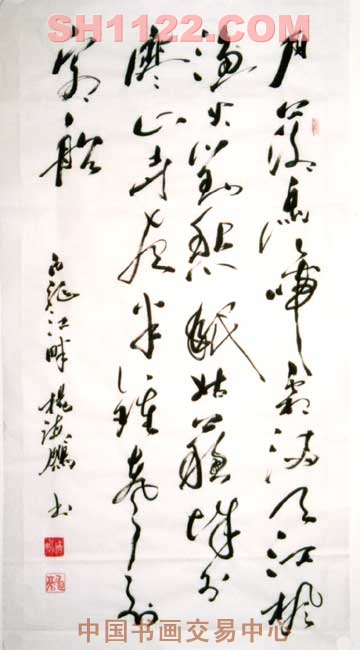 SH1122.COM
月落烏啼霜滿天江楓
漁火對愁眠姑蘇城外
寒山寺夜半鐘聲到
客船
白龍江畔楊海鵬书
中国书画交易中心